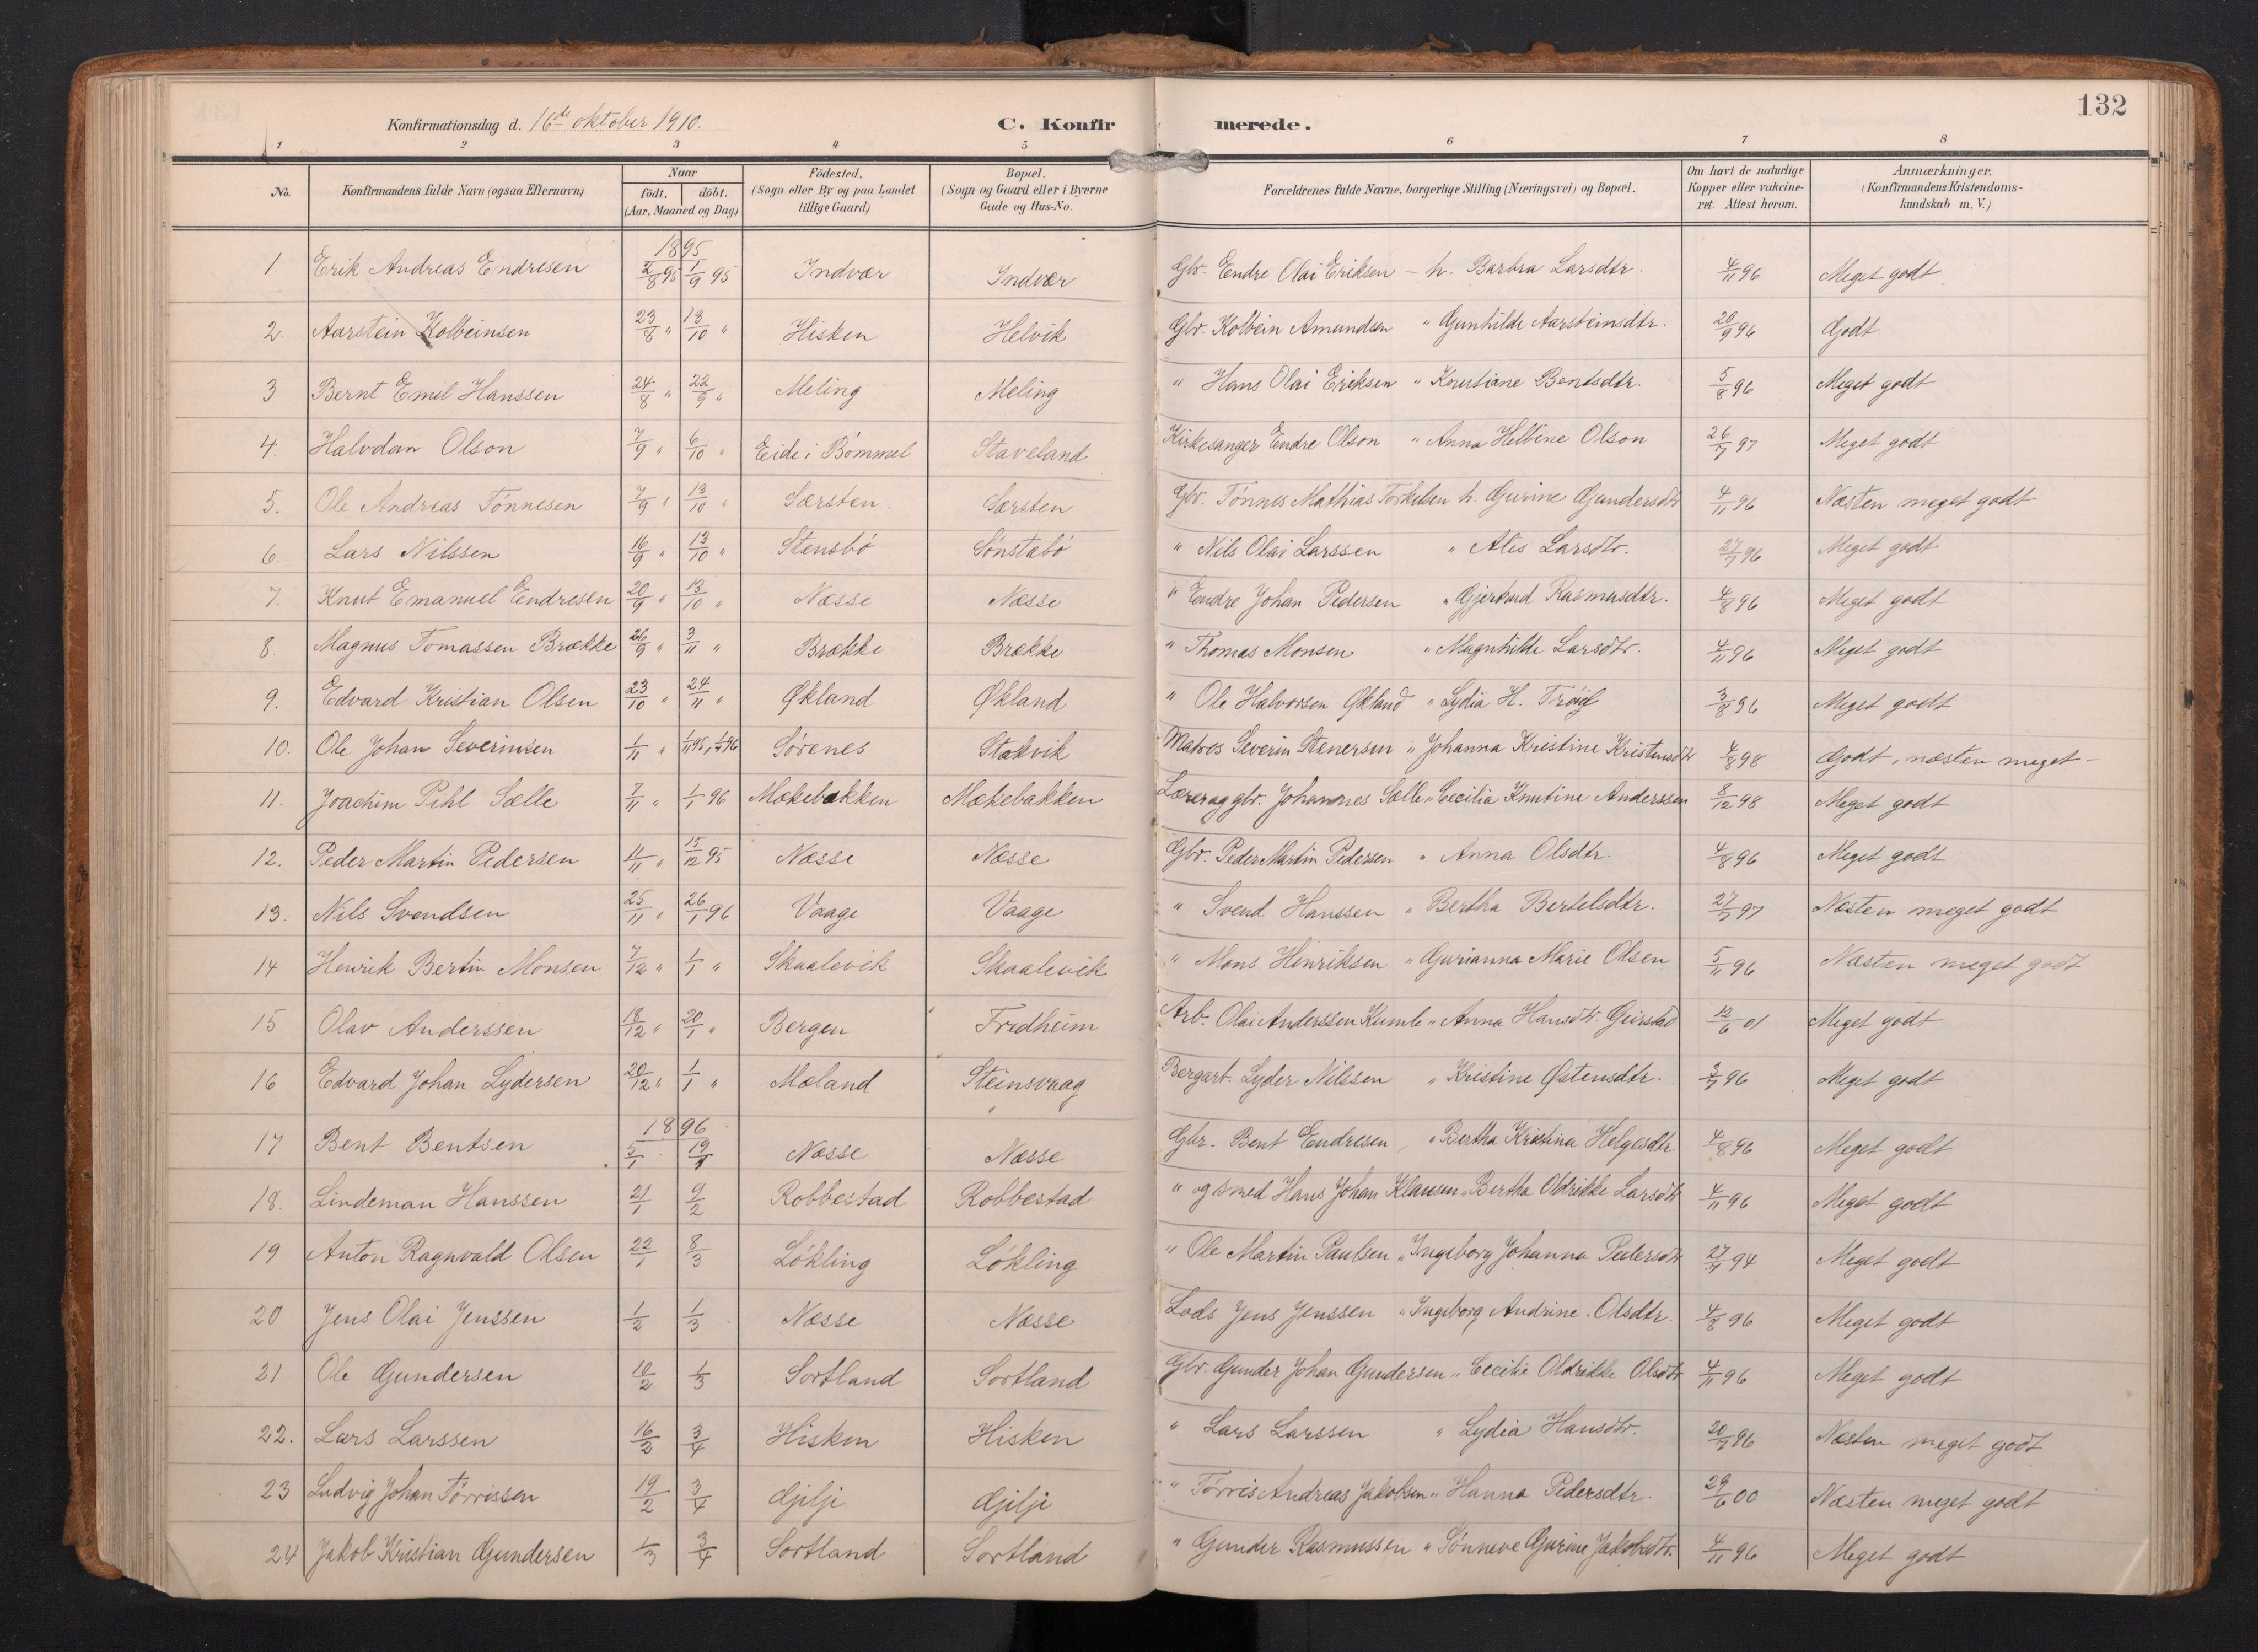 132
Konfirmationsdag d. 16de oktober 1910. C. Konfirmerede.
1 2 3 4 5 6 7 8
No. Konfirmandens fulde Navn (ogsaa Efternavn) Naar födt, döbt. (Aar, Maaned og Dag) Födested. (Sogn eller By og paa Landet tillige Gaard) Bopæl. (Sogn og Gaard eller i Byerne Gade og Hus-No. Forældrenes fulde Navne, borgerlige Stilling (Næringsvei) og Bopæl. Om havt de naturlige Kopper eller vakcineret. Attest herom. Anmærkninger. (Konfirmandens Kristendomskundskab m. V.)
1895
1. Erik Andreas Endresen 2/8 95 1/9 95 Indvær Indvær Gbr. Endre Olai Eriksen – h. Barbra Larsdtr. 4/11 96 Meget godt
2. Aarstein Kolbeinsen 23/8 " 13/10 " Hisken Helvik Gbr. Kolbein Amundsen " Gunhilde Aarsteinsdtr. 20/9 96 Godt
3 Bernt Emil Hanssen 24/8 " 22/9 " Meling Meling " Hans Olai Eriksen " Knutiane Bentsdtr. 5/8 96 Meget godt
4. Halvdan Olson 7/9 " 6/10 " Eide i Bømmel Staveland Kirkesanger Endre Olson " Anna Helbine Olson 26/7 97 Meget godt
5. Ole Andreas Tønnesen 7/9 " 13/10 " Særsten Særsten Gbr. Tønnes Mathias Torkelsen h. Gurine Gundersdtr 4/11 96 Næsten meget godt
6. Lars Nilssen 16/9 " 13/10 " Stensbø Sønstabø " Nils Olai Larssen " Alis Larsdtr. 27/7 96 Meget godt
7. Knut Emanuel Endresen 20/9 " 13/10 " Næsse Næsse " Endre Johan Pedersen " Gjertrud Rasmusdtr. 4/8 96 Meget godt
8. Magnus Tomassen Brække 26/9 " 3/11 " Brække Brække " Thomas Monsen " Magnhilde Larsdtr. 4/11 96 Meget godt
9. Edvard Kristian Olsen 23/10 " 24/11 " Økland Økland " Ole Halvorsen Økland " Lydia H. 3/8 96 Meget godt
10. Ole Johan Severinsen 1/11 " 1/11 95, Sørenes Stokvik Matros Severin Stenersen " Johanna Kristine Kristensdtr 4/8 98 Godt, næsten meget –
11. Joachim Pihl Sælle 7/11 " 1/1 96 Mækebakken Mækebakken Lærer og gbr. Johannes Sælle " Cecilia Knutine Anderssen 8/12 98 Meget godt
12. Peder Martin Pedersen 11/11 " 15/12 95 Næsse Næsse Gbr. Peder Martin Pedersen " Anna Olsdtr. 4/8 96 Meget godt
13. Nils Svendsen 25/11 " 26/1 96 Vaage Vaage " Svend Hanssen " Bertha Bertelsdtr. 27/7 97 Næsten meget godt
14 Henrik Bertin Monsen 7/12 " 1/1 " Skaalevik Skaalevik " Mons Henriksen " Gurianna Marie Olsen 5/11 96 Næsten meget godt
15 Olav Anderssen 18/12 " 20/1 " Bergen Fredheim Arb. Olai Anderssen Kumle " Anna Hansdtr. 12/6 01 Meget godt
16 Edvard Johan Lydersen 20/12 " 1/1 " Mæland Steinsvaag Bergarb. Lyder Nilssen " Kristine Østensdtr. 3/7 96 Meget godt
1896
17 Bent Bentsen 5/1 19/1 Næsse Næsse Gbr. Bent Endresen " Bertha Kristina Helgesdtr 4/8 96 Meget godt
18. Lindeman Hanssen 21/1 9/2 Robbestad Robbestad " og smed Hans Johan Klausen " Bertha Oldrikke Larsdtr 4/11 96 Meget godt
19 Anton Ragnvald Olsen 22/1 8/3 Løkling Løkling " Ole Martin Paulsen " Ingeborg Johanna Pedersdtr 27/7 94 Meget godt
20 Jens Olai Jenssen 1/2 1/3 Næsse Næsse Lods Jens Jenssen " Ingeborg Andrine Olsdtr. 4/8 96 Meget godt
21 Ole Gundersen 10/2 1/3 Sortland Sortland Gbr. Gunder Johan Gundersen " Cecilie Oldrikke Olsdtr 4/11 96 Meget godt
22. Lars Larssen 16/2 3/4 Hisken Hisken " Lars Larssen " Lydia Hansdtr. 20/7 96 Næsten meget godt
23 Ludvig Johan Tørrissen 19/2 3/4 Gjilje Gjilje " Tørris Andreas Jakobsen " Hanna Pedersdtr. 29/6 00 Næsten meget godt
24 Jakob Kristian Gundersen 1/3 3/4 Sortland Sortland " Gunder Rasmussen " Sønneve Gurine Jakobsdtr. 4/11 96 Meget godt